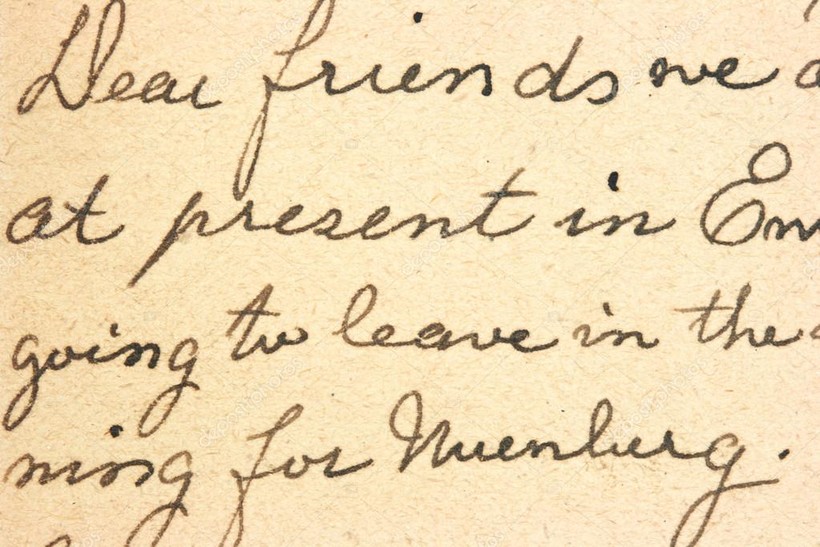 Dear friends we
at present in
going to leave in the
ning for Nuenburg.